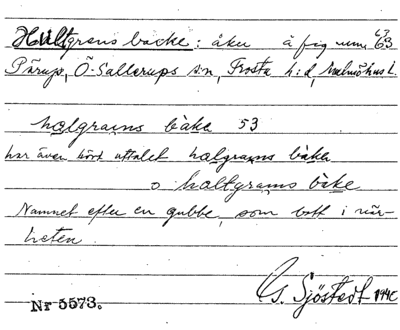 Hultgrens backe: åker å fig num 63
Pärup, Ö-Sallerups s:n, Frosta h:d, Malmöhus l.
halgrains bàke 53
har även hört uttalet halgrams bàke
o haltgrams bàke
Namnet efter en gubbe, som bott i när-
heten.
G. Sjöstedt 1940
Nr 5573.